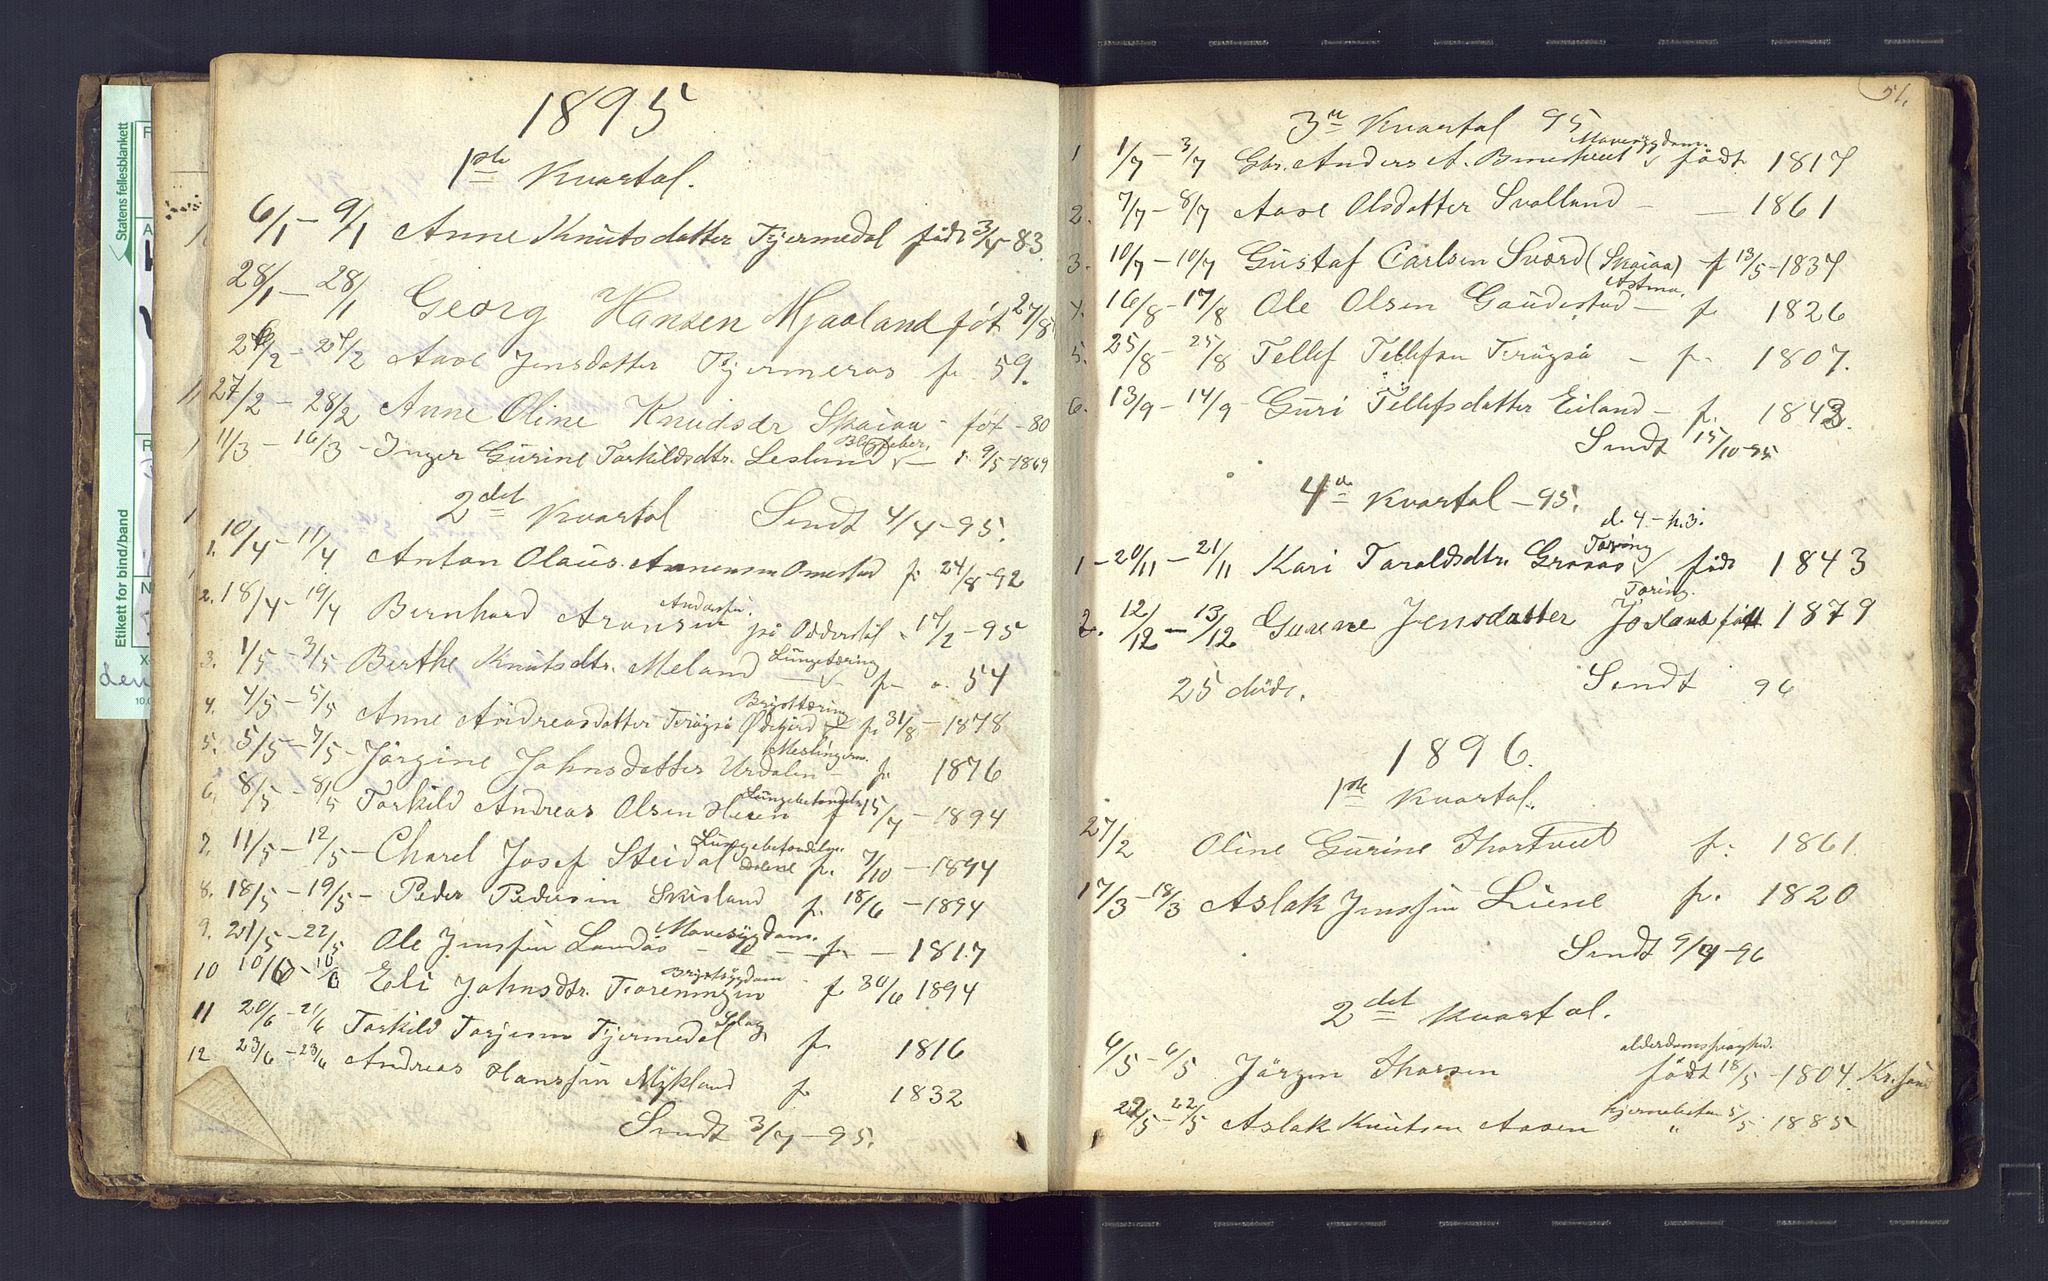 1895
1ste Kvartal.
6/1 – 9/1 Anne Knutsdatter Tjermedal född 3/4 - 83.
28/1 – 28/1 Georg Hansen Mjaaland föt 27/8
2 /2 – 27/2 Aase Jensdatter Tjermeros f. 59.
27/2 – 28/2 Anne Oline Knudsdr Skaiaa - föt - 80
Blodfeber.
11/3 – 16/3 - Inger Gurine Torkildsdtr. Leslund – f. 9/5 - 1869
2det Kvartal Sendt 4/4 - 95.
1. 10/4 – 11/4 Anton Olaus Annensen Omestad f. 24/8 - 92
2. 18/4 – 19/4 Bernhard Aronsen på Odderstöl 17/2 - 95
Lungetæring
3. 1/5 – 3/5 Berthe Knutsdtr. Meland – f. 54
Brysttæring
4. 4/5 – 5/5 Anne Andreasdatter Terøgsö Ödegård f. 31/8 - 1878
Meslinger
5. 5/5 – 7/5 - Jörgine Johnsdatter Urdalen – f. 1876
Lungebetændelse
6. 8/5 – 8/5 Torkild Andreas Olsen f 15/4 - 1894
Lungebetændelse
7. 11/5 – 12/5 - Charel Josef Steidal f. 7/10 - 1894
8. 18/5 – 19/5 - Peder Pedersen Skisland f. 18/6 - 1894
Mavesygdom.
9. 21/5 – 22/5 Ole Jenssen Landås – f. – 1817
Brystsygdom
10 10/6 – 10/6 Eli Johnsdtr. Foreningen f 30/6 1894
Slag
11 20/6 – 21/6 Torkild Torjesen Tjermedal f. 1816
12 23/6 – 23/6 Andreas Hanssen Mykland f. 1832
Sendt 3/7 - 95.
51.
3die Kvartal 95
Mavesygdom.
1 1/7 – 3/7 Gbr. Anders A. född 1817
2. 7/7 – 8/7 Aase Olsdatter Svalland – – 1861
3. 10/7 – 10/7 Gustaf Carlsen Sværd (Skaiaa) f 13/5 - 1837
Astma.
4. 16/8 – 17/8 Ole Olsen Gaudestad – f. 1826
5. 25/8 – 25/8 Tellef Tellefsen Terøgsö – f. 1807.
6. 13/9 – 14/9 - Guri Tellefsdatter Eiland – f. 1843.
Sendt 15/10 - 95
4de Kvartal – 95.
d. 4. – h. 3.
Tæring
1 - 20/11 – 21/11 Kari Taraldsdtr. Grosås född 1843
Tæring.
2. 12/12 – 13/12 Gurine Jensdatter Josland född 1879
25 döde. Sendt 96
1896.
1ste Kvartal.
27/2 Oline Gurine Thortveit f. 1861.
17/3 – 18/3 Aslak Jenssen Liene f. 1820
Sendt 9/4 - 96
2det Kvartal.
6/5 – 6/5 Jörgen Thorsen född 18/5 - 1804.
22/5 – 22/5 Aslak Knutsen Aasen „ 5/5 - 1885
Statens fellesblankett
Etikett for bind/band